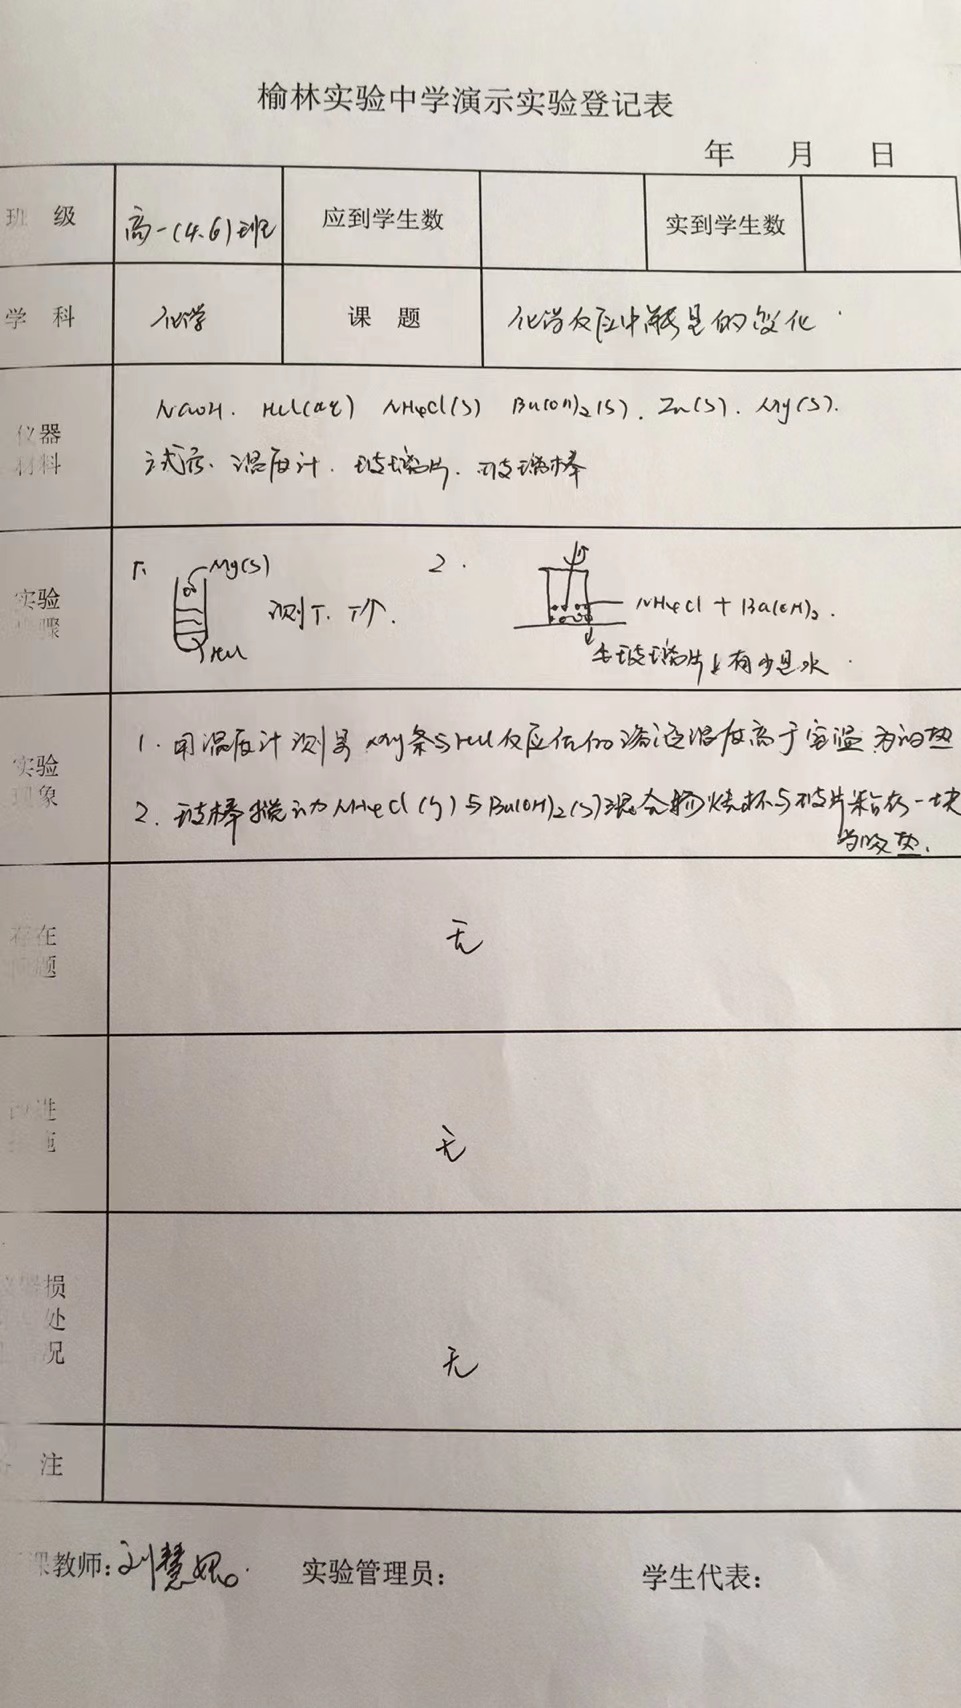 榆林实验中学演示实验登记表
年 月 日
班 级 高一(4.6)班 应到学生数 实到学生数
学 科 化学 课 题 化学反应中能量的变化
仪器
材料
NaOH. HCl(aq) NH4Cl(s) Ba(OH)2(s). Zn(s). Mg(s).
试管. 温度计. 玻璃片. 玻璃棒
实验
骤
1. Mg(s) 2.
测T. T个. NH4Cl + Ba(OH)2.
HCl
玻璃片上有少量水.
实验
现象
1. 用温度计测量 Mg条与HCl反应后的溶液温度高于室温 为放热
2. 玻棒搅动NH4Cl(s)与Ba(OH)2(s)混合物烧杯与玻片粘在一块
为吸热.
存在
问题
无
改进
措施
无
损
处
况
无
注
课教师: 刘慧 实验管理员: 学生代表: